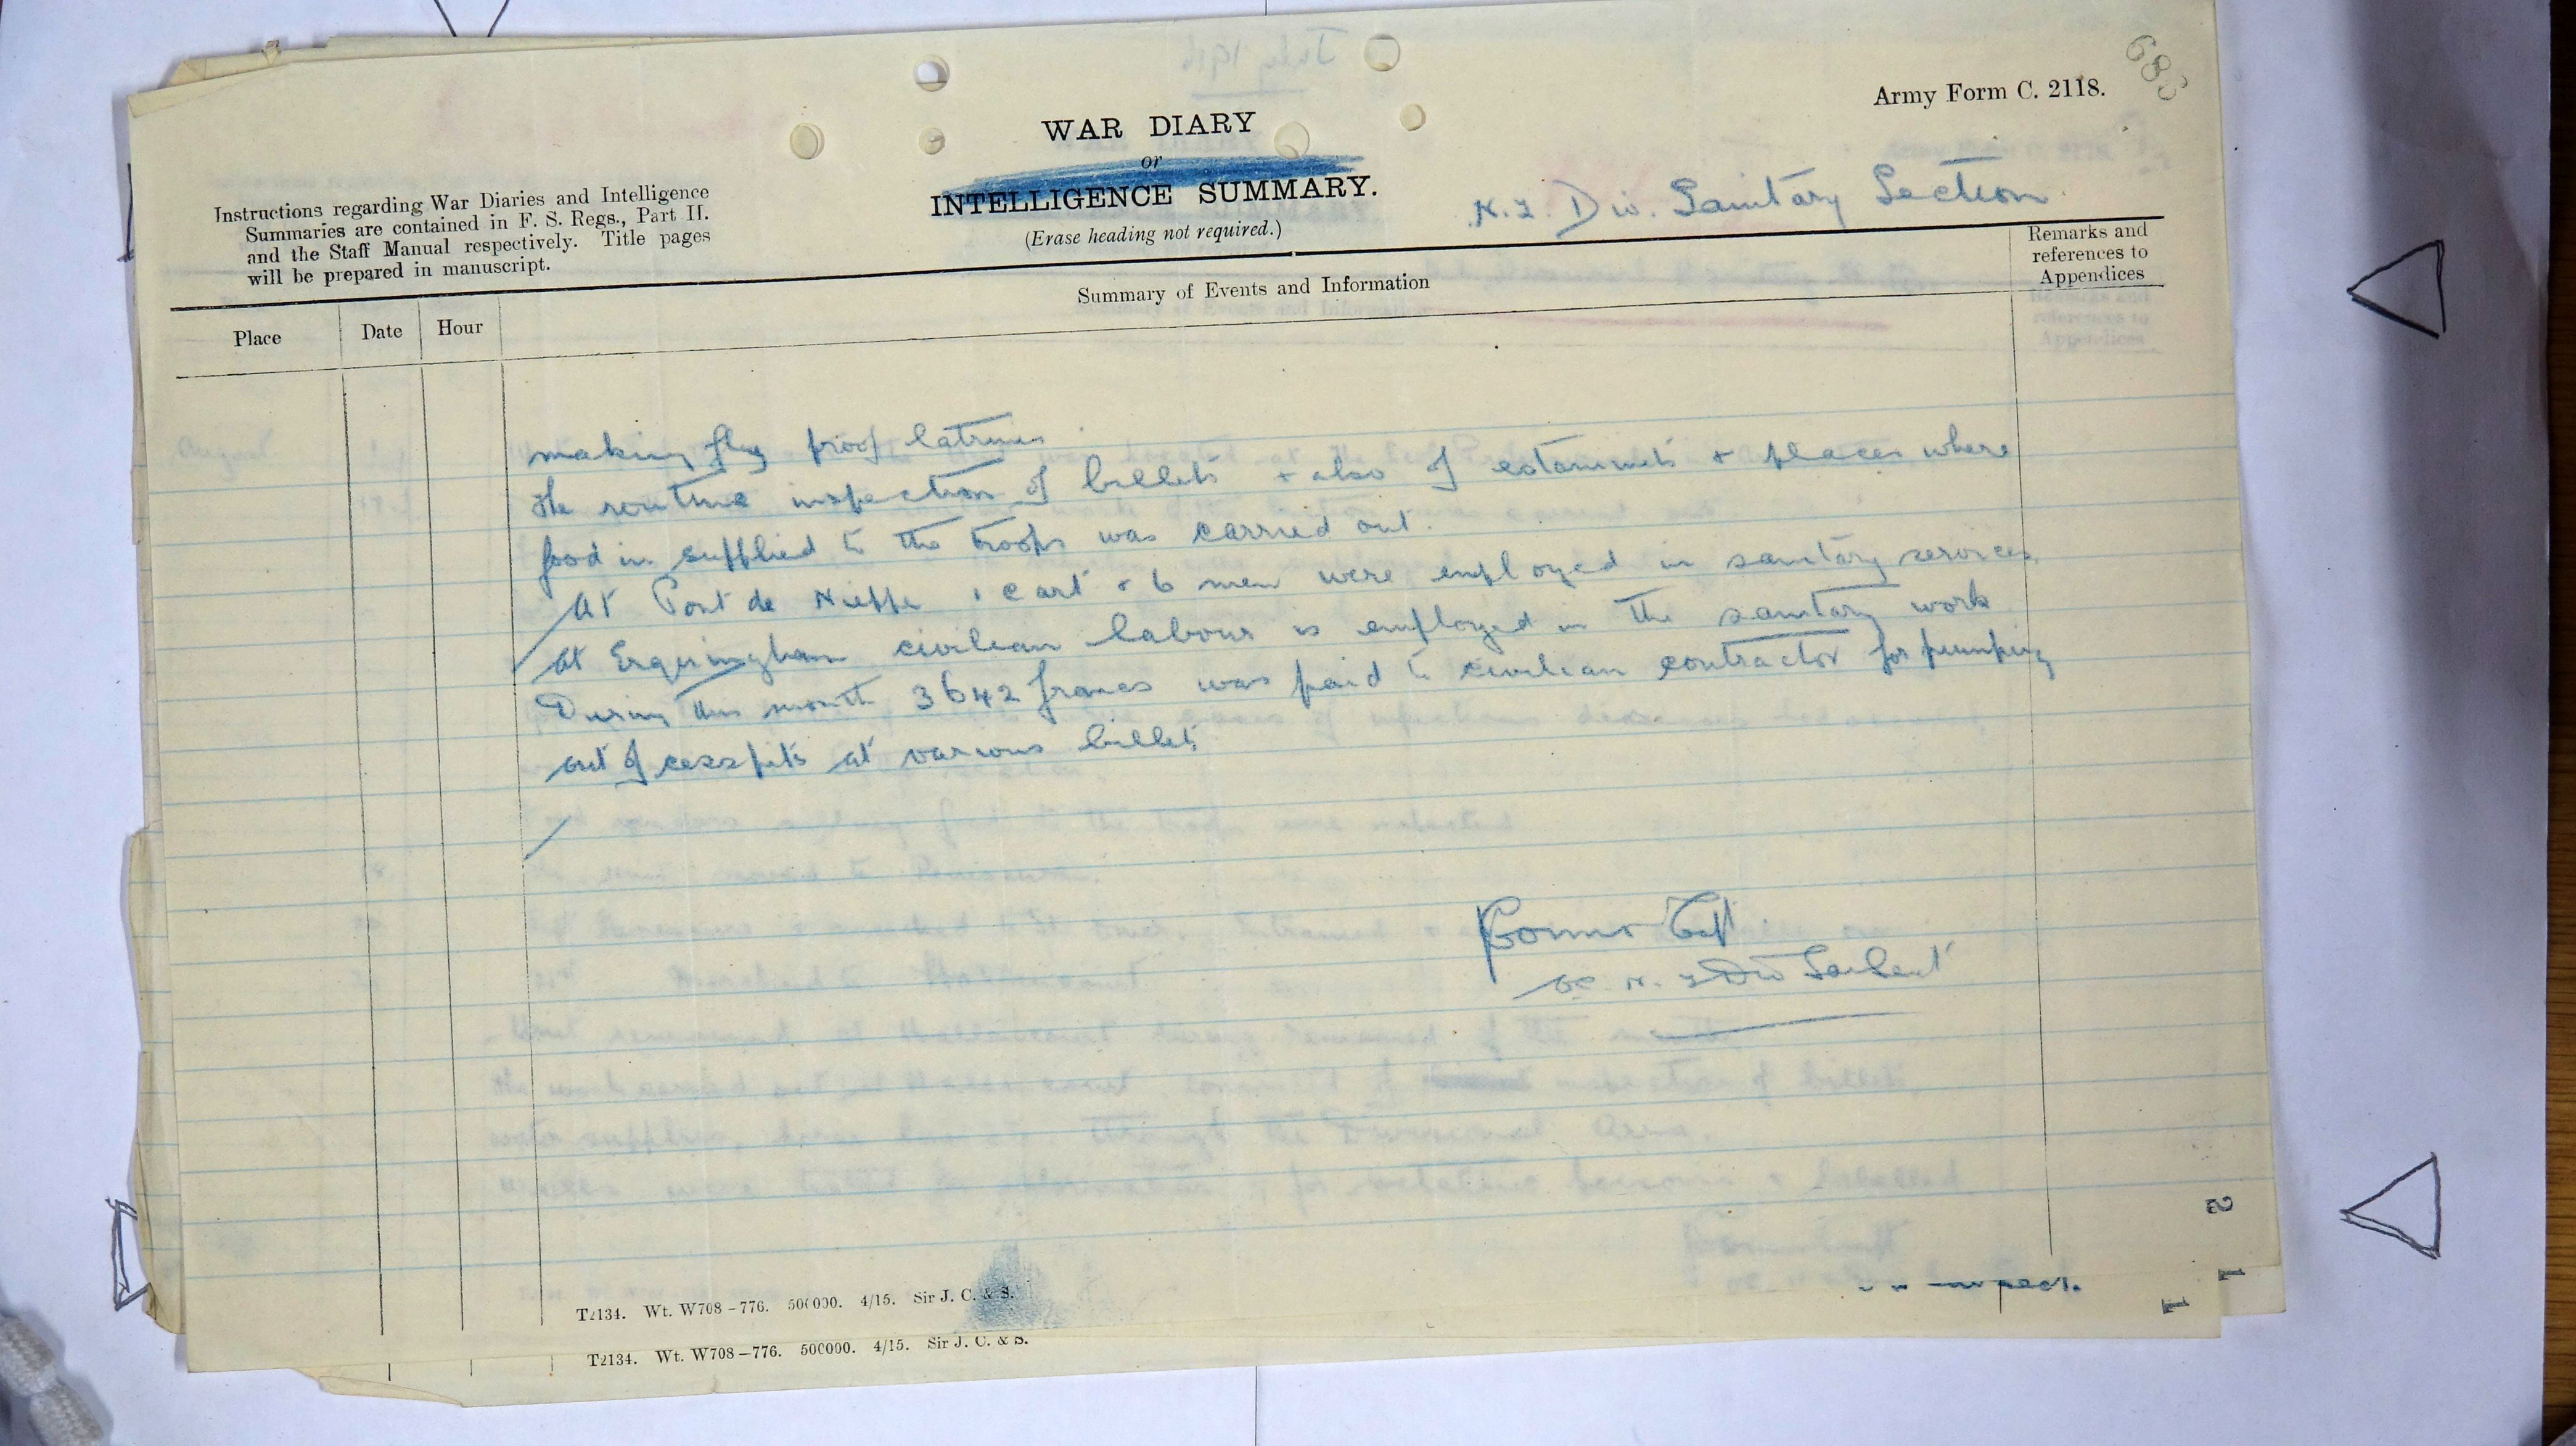 688
Army Form C. 2118.
WAR DIARY
or
INTELLIGENCE SUMMARY.
(Erase heading not required.)
Instructions regarding War Diaries and Intelligence
Summaries are contained in F. S. Regs., Part II.
and the Staff Manual respectively. Title pages
will be prepared in manuscript.
N.Z. Div. Sanitary Section
Remarks and
references to
Appendices
Summary of Events and Information
Place
Date
Hour
making fly proof latrines.
The routine inspection of billets + also of estaminets + places where
food is supplied to the troops was carried out.
At Pont de Nieppe 1 cart + 6 men were employed in sanitary services.
At Erquinghem civilian labour is employed in the sanitary work
During this month 3642 francs was paid to civilian contractor for pumping
out of cesspits at various billets
Capt
OC N.Z Div San Sect
T2134. Wt. W708-776. 500000. 4/15. Sir J. C. & S.
T2134. Wt. W708-776. 500000. 4/15. Sir J. C. & S.
2
1
1